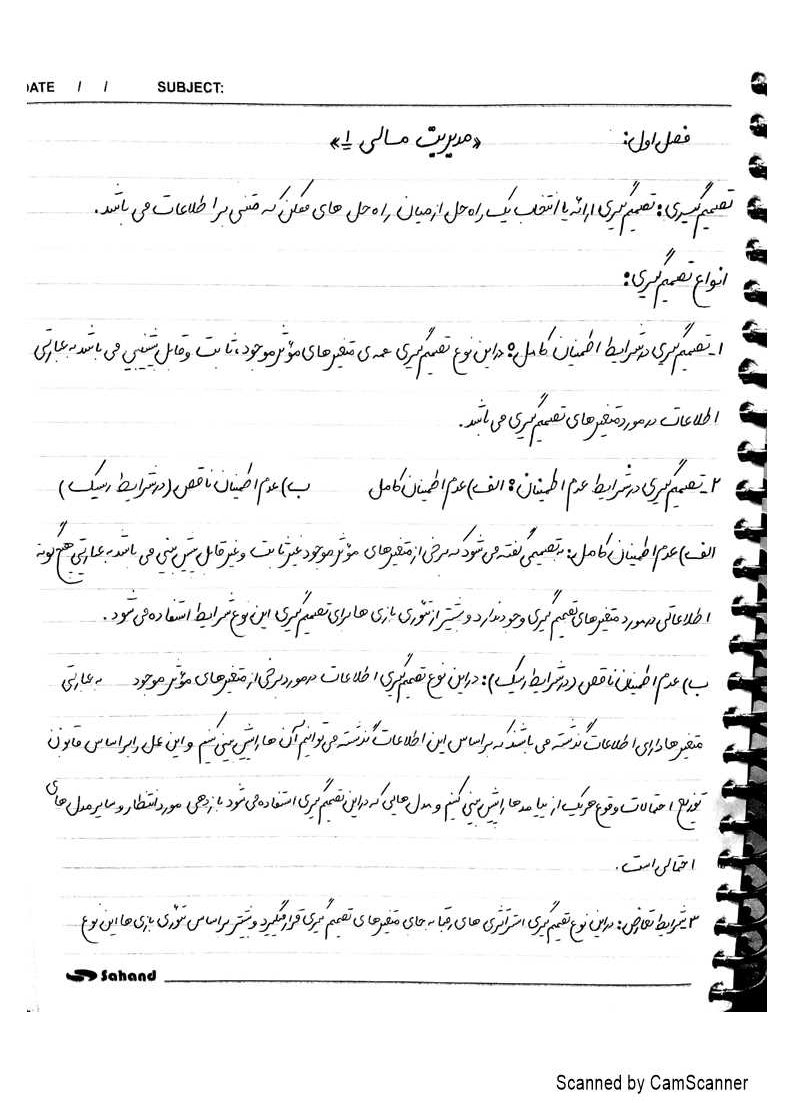 DATE / / SUBJECT:
فصل اول: «مدیریت مالی ۱»
تصمیم گیری: تصمیم گیری ارائه یا انتخاب یک راه حل از میان راه حل های ممکن که مبتنی بر اطلاعات می باشد.
انواع تصمیم گیری:
۱- تصمیم گیری در شرایط اطمینان کامل: در این نوع تصمیم گیری همه ی متغیرهای مؤثر موجود، ثابت و قابل پیش بینی می باشد به عبارتی
اطلاعات در مورد متغیرهای تصمیم گیری می باشد.
۲- تصمیم گیری در شرایط عدم اطمینان: الف) عدم اطمینان کامل ب) عدم اطمینان ناقص (در شرایط ریسک)
الف) عدم اطمینان کامل: به تصمیمی گفته می شود که برخی از متغیرهای مؤثر موجود غیر ثابت و غیر قابل پیش بینی می باشد به عبارتی هیچ گونه
اطلاعاتی در مورد متغیرهای تصمیم گیری وجود ندارد و بیشتر از تئوری بازی ها برای تصمیم گیری این نوع شرایط استفاده می شود.
ب) عدم اطمینان ناقص (در شرایط ریسک): در این نوع تصمیم گیری اطلاعات در مورد برخی از متغیرهای مؤثر موجود به عبارتی
متغیرها دارای اطلاعات گذشته می باشند که بر اساس این اطلاعات گذشته می توانیم آن ها را پیش بینی کنیم و این عمل را بر اساس قانون
توزیع احتمالات وقوع هر یک از پیامدها را پیش بینی کنیم و مدل هایی که در این تصمیم گیری استفاده می شود بازدهی مورد انتظار و سایر مدل های
احتمالی است.
۳- شرایط تعارض: در این نوع تصمیم گیری استراتژی های رقبا به جای متغیرهای تصمیم گیری قرار میگیرد و بیشتر بر اساس تئوری بازی ها این نوع
Sahand
Scanned by CamScanner